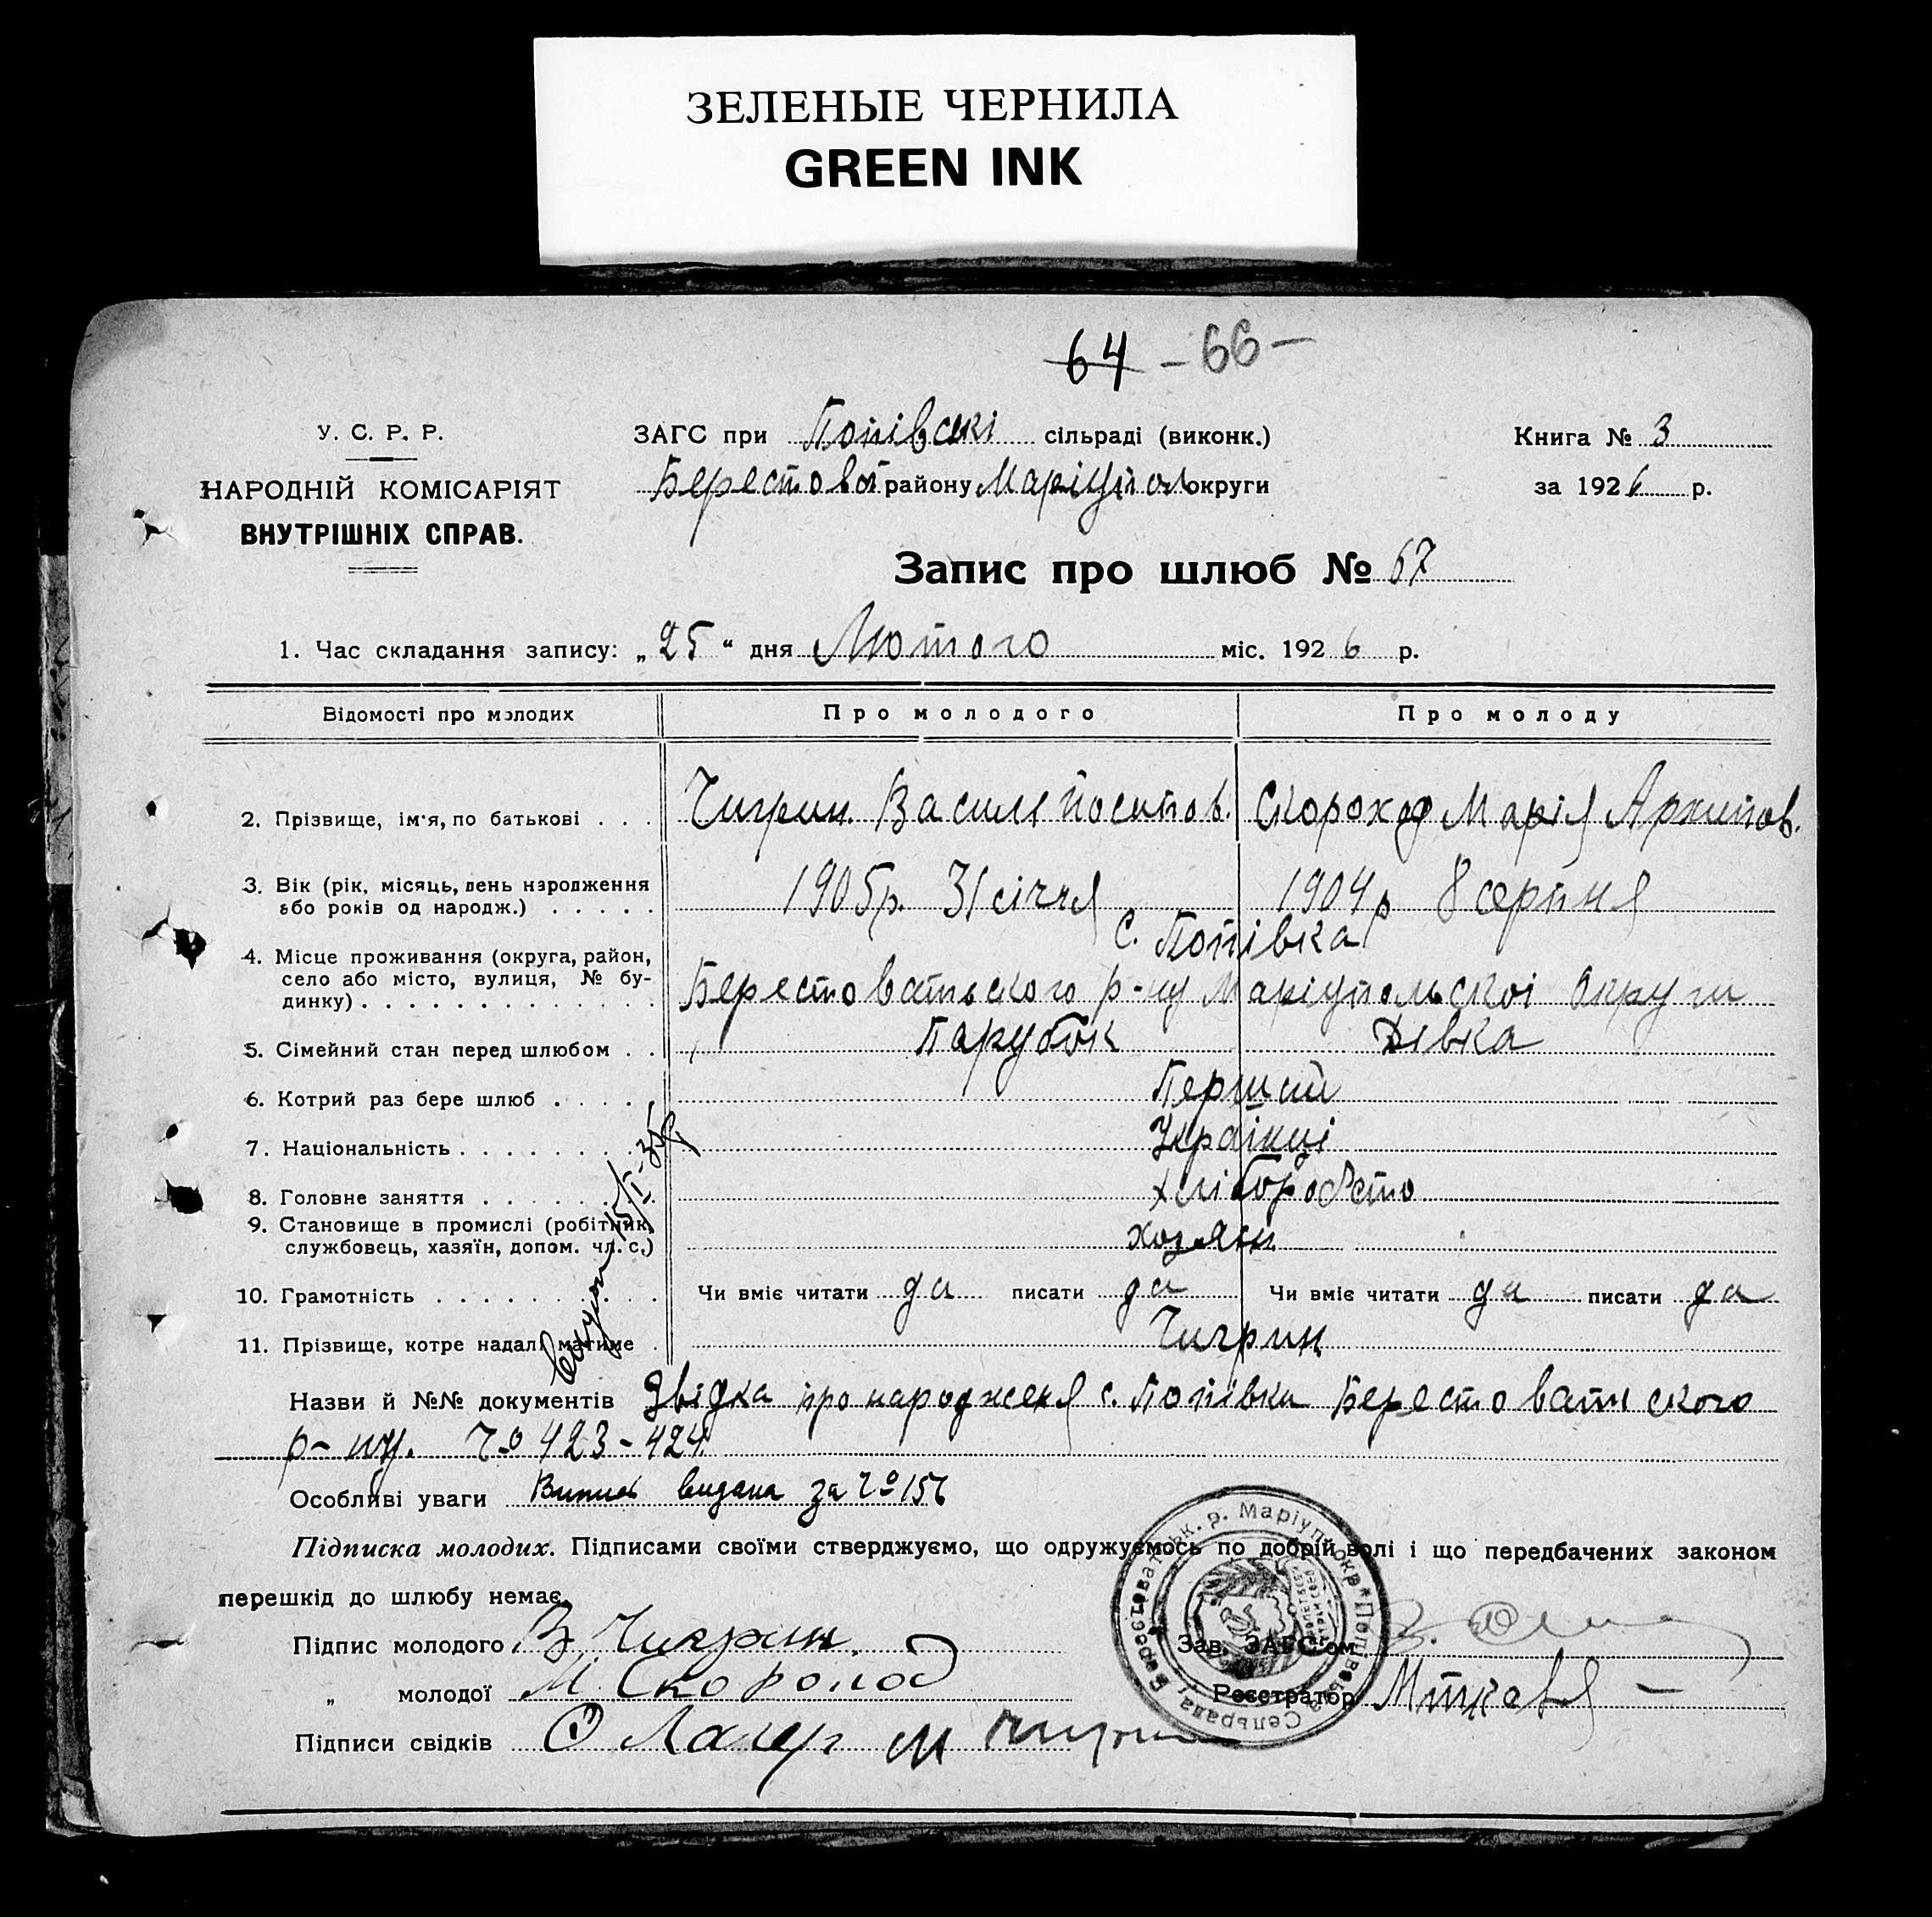 ЗЕЛЕНЫЕ ЧЕРНИЛА
GREEN INK
64 - 66 -
У. С. Р. Р.
НАРОДНІЙ КОМІСАРІЯТ
ВНУТРІШНІХ СПРАВ.
ЗАГС при Попівскі сільраді (виконк.)
Берестоват району Маріупол округи
Книга № 3
за 1926 р.
Запис про шлюб № 67
1. Час складання запису: „25“ дня Лютого міс. 1926 р.
Відомості про молодих Про молодого Про молоду
2. Прізвище, ім'я, по батькові . . . Чигрин. Василь Йосипов. Скороход Марія Архипов.
3. Вік (рік, місяць, день народження
або років од народж.) . . . . . 1905р. 31 січня 1904р 8 серпня
с. Попівка
4. Місце проживання (округа, район,
село або місто, вулиця, № бу-
динку) . . . . . . . . . . . . . Берестоватьского р-ну Маріупольскоі Округи
5. Сімейний стан перед шлюбом . . Парубок Дівка
6. Котрий раз бере шлюб . . . . . Перший
7. Національність . . . . . . . . . Українці
8. Головне заняття . . . . . . . . Хліборобство
9. Становище в промислі (робітник,
службовець, хазяїн, допом. чл. с.) хозяїн
10. Грамотність . . . . . . . . . . Чи вміє читати да писати да Чи вміє читати да писати да
11. Прізвище, котре надалі матиме . Чигрин
15/I-35р
Назви й №№ документів Звідка про народженя с. Попівка Берестоватьского
р-ну. Чо 423-424.
Особливі уваги Випись видана за Чо 156
Підписка молодих. Підписами своїми стверджуємо, що одружуємось по добрій волі і що передбачених законом
перешкід до шлюбу немає.
Підпис молодого В Чигрин.
„ молодої М. Скороход
Підписи свідків М Чигрин
Зав. ЗАГС'ом
Реєстратор
Берестоватьк. р. Маріупіл. окр. * Попівська Сельрада